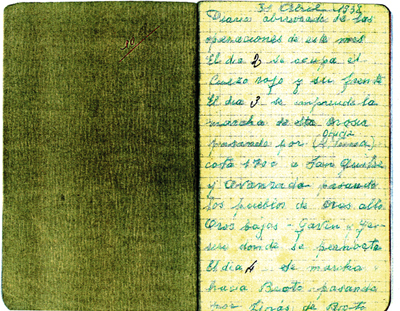 30 Abril 1938
Diario abreviado de las
operaciones de este mes
El dia 2 se ocupa el
Cuezo rojo y su frente
El dia 3 se emprende la
marcha de Sta Orosia
pasando por
cota 1780 a San
y avanzada pasando
los pueblos de Oros alto
Oros bajos - Gavin y Yer-
sero donde se pernocta
El dia 4 se marcha
hacia Broto pasando
por Linás de Broto